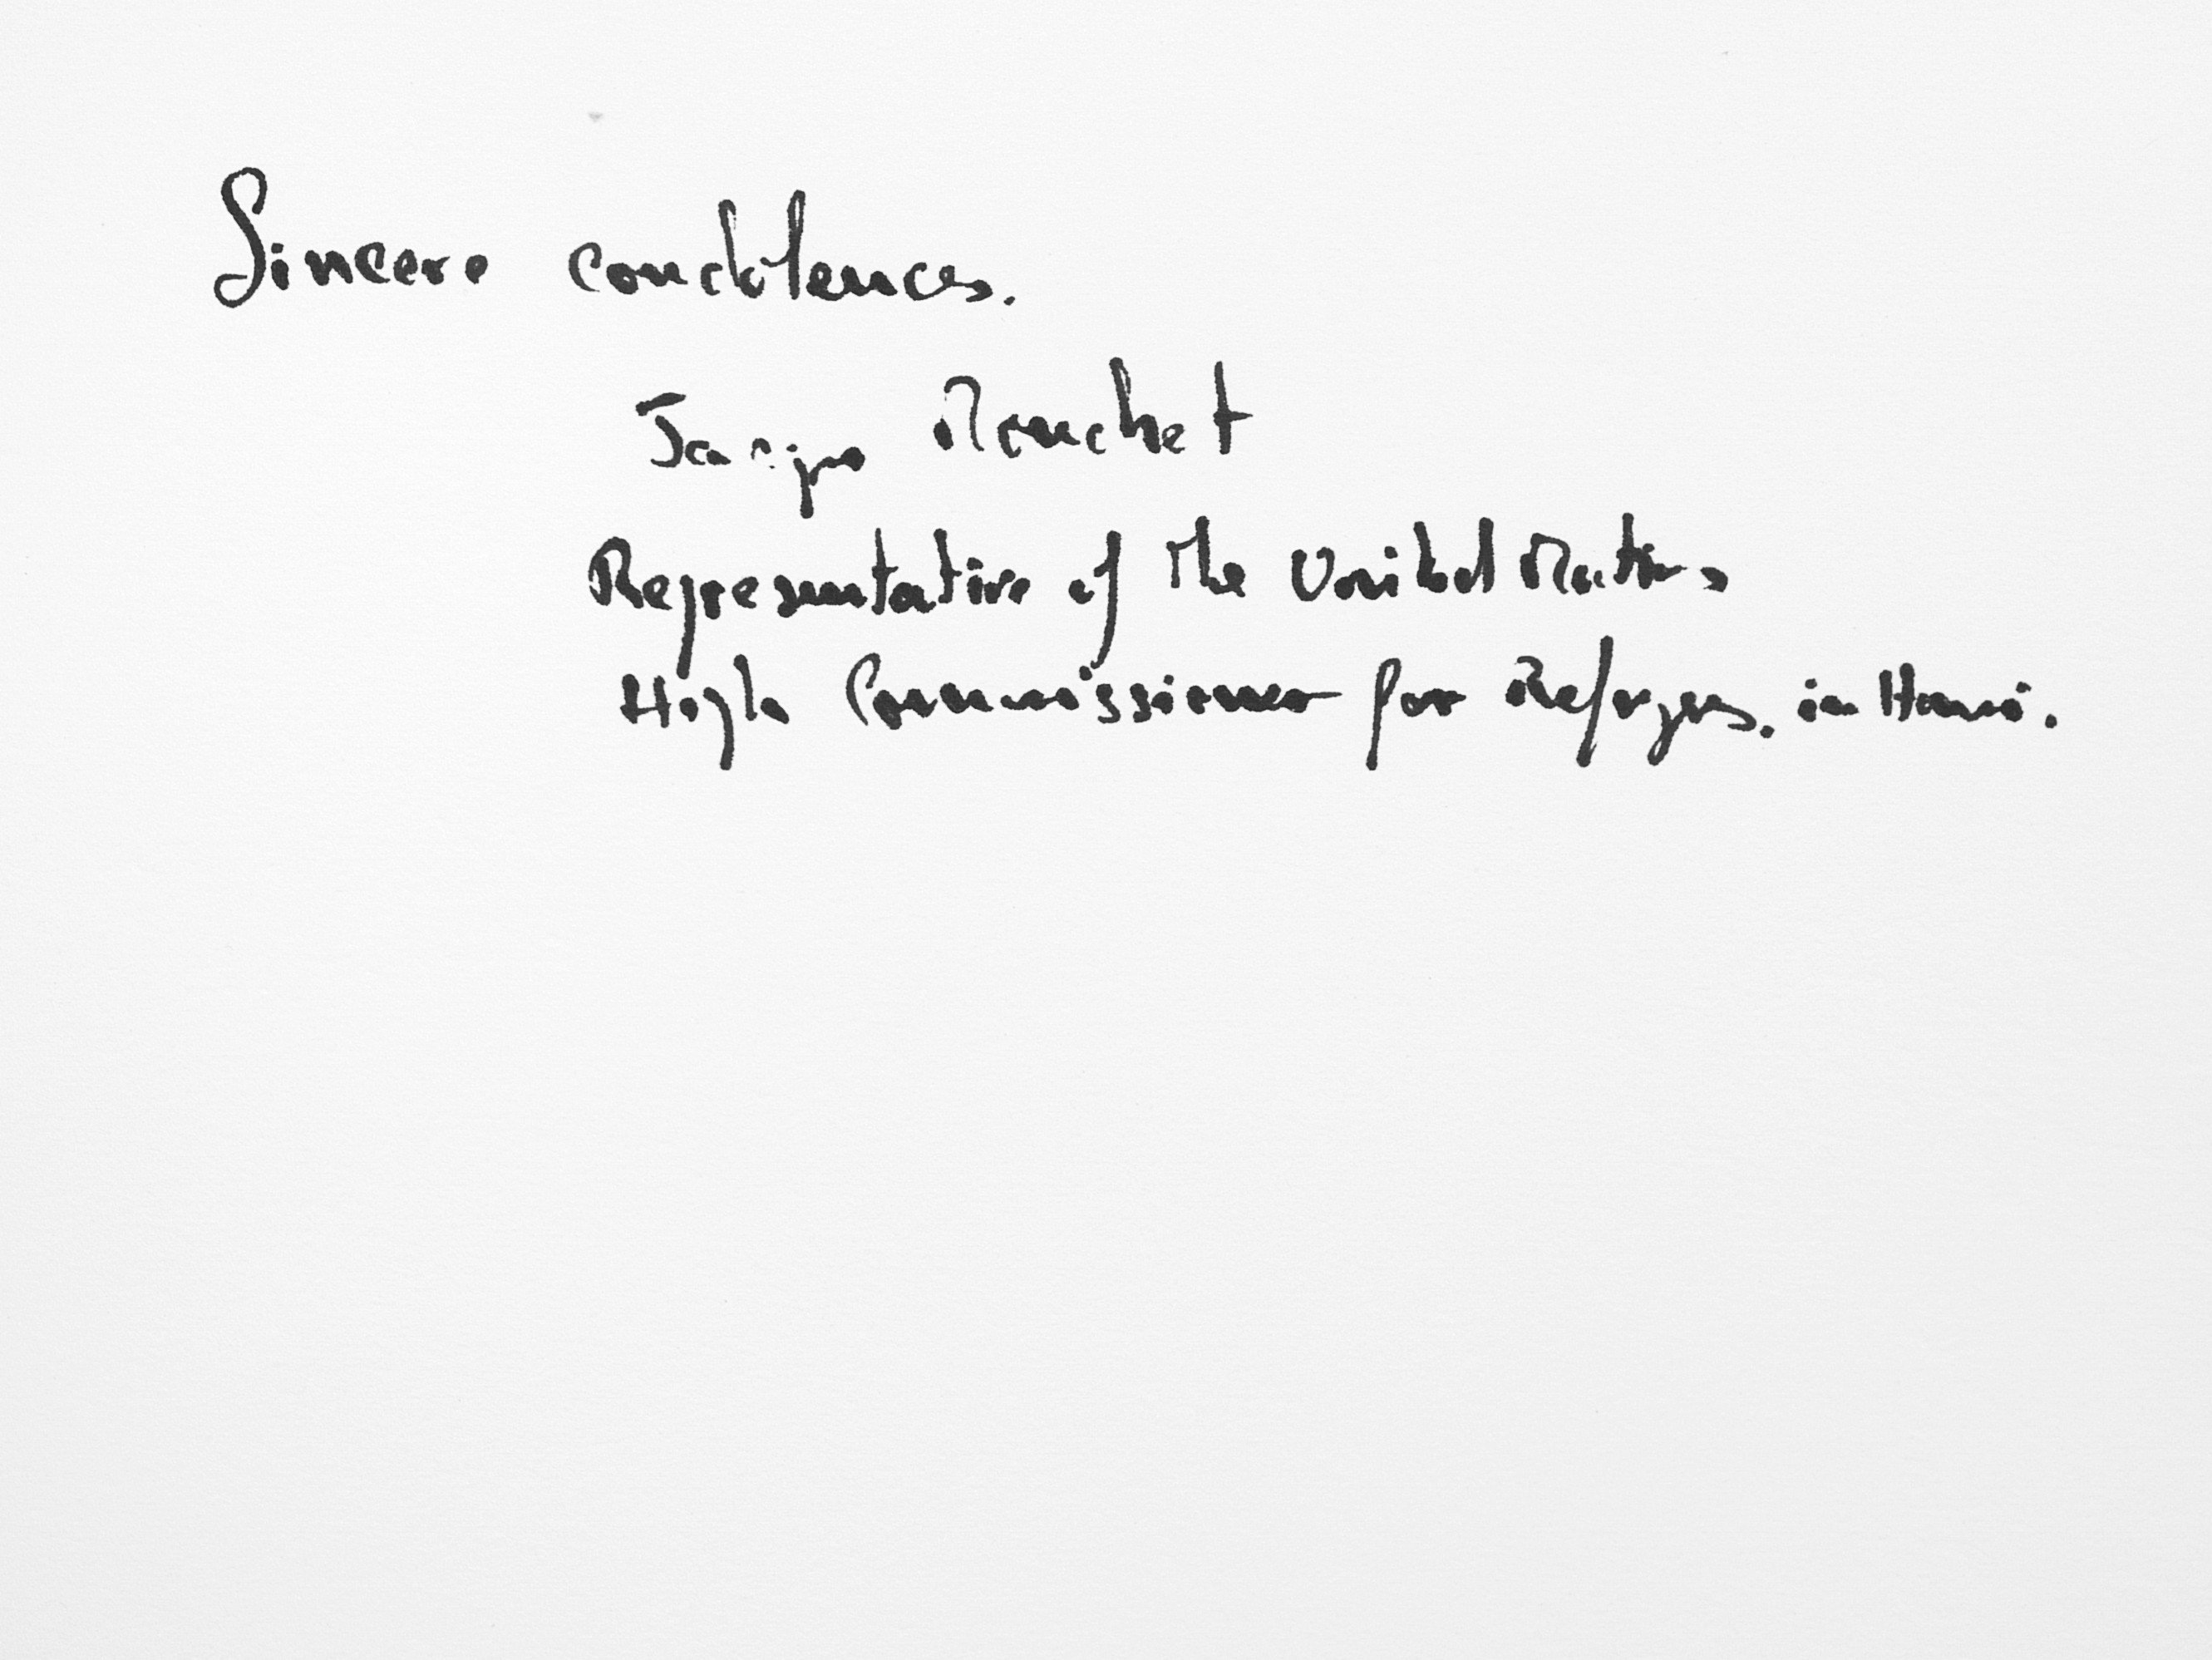 Sincere condolences.
Jacques Mouchet
Representative of the United Nations
High Commissioner for Refugees. in Hanoi.